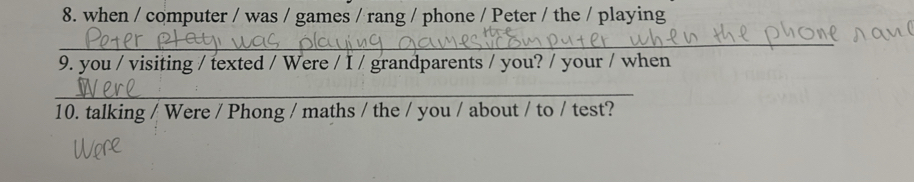 8. when / computer / was / games / rang / phone / Peter / the / playing
Peter was playing games the computer when the phone
9. you / visiting / texted / Were / I / grandparents / you? / your / when
Were
10. talking / Were / Phong / maths / the / you / about / to / test?
Were